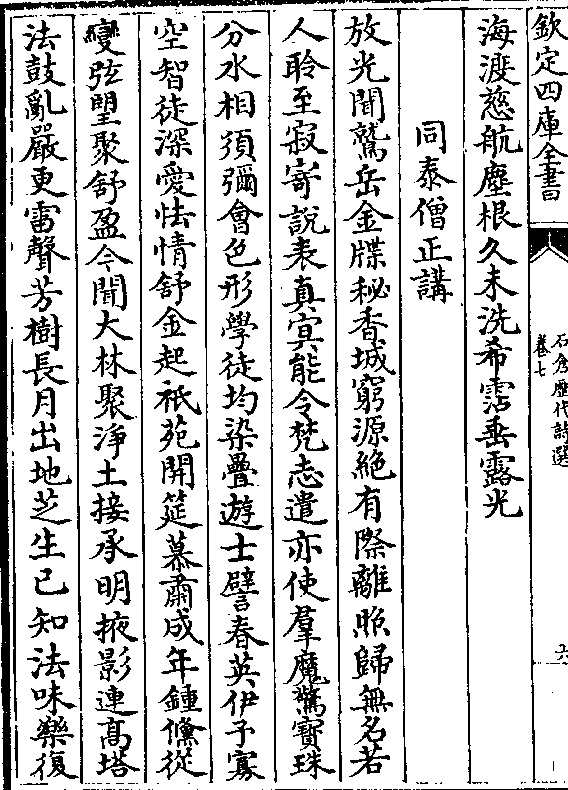 欽定四庫全書
石倉歷代詩選
卷七
六
海渡慈航塵根久未洗希霑垂露光
同泰僧正講
放光聞鷲岳金牒秘香城窮源絕有際離照歸無名若
人聆至寂寄説表真冥能令梵志遣亦使羣魔驚寶珠
分水相須彌會色形學徒均染㲲遊士譬春英伊予寡
空智徒深愛怯情舒金起祇苑開筵慕肅成年鍾儵從
變弦望聚舒盈今聞大林聚淨土接承明掖影連高塔
法鼓亂嚴更雷聲芳樹長月出地芝生已知法味樂復